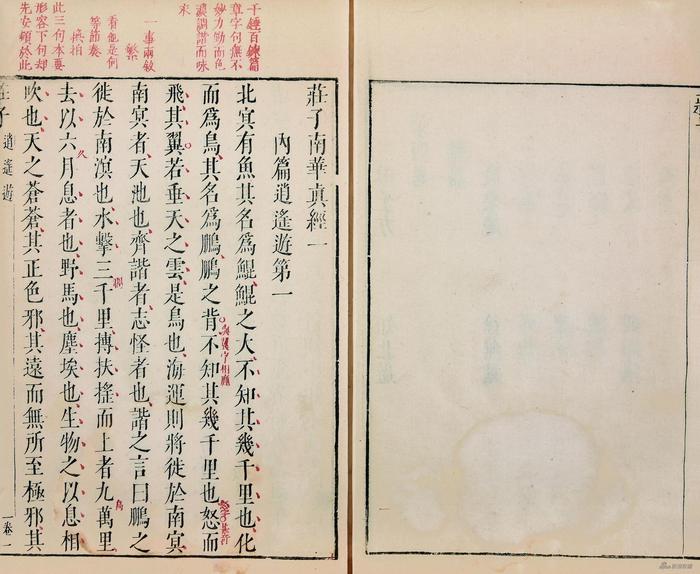 千錘百鍊篇
章字句無不
妙力勁而色
濃調諧而味
來
一事兩敘
繁
看他是何
等節奏
此三句本要
形容下句却
先安頓於此
莊子南華眞經一
內篇逍遙遊第一
北冥有魚其名爲鯤鯤之大不知其幾千里也化
而爲鳥其名爲鵬鵬之背不知其幾千里也怒而
飛其翼若垂天之雲是鳥也海運則將徙於南冥
南冥者天池也齊諧者志怪者也諧之言曰鵬之
徙於南溟也水擊三千里搏扶搖而上者九萬里
去以六月息者也野馬也塵埃也生物之以息相
吹也天之蒼蒼其正色邪其遠而無所至極邪其
莊子 逍遙遊
卷一